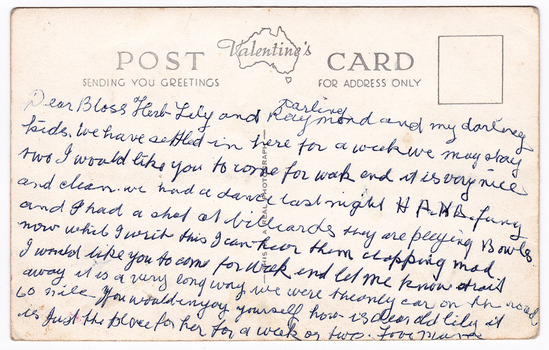 Valentine's
POST CARD
SENDING YOU GREETINGS
FOR ADDRESS ONLY
Dear Bloss Herb Lily and Darling Raymond and my darling
kids. We have settled in here for a week we may stay
two I would like you to come for wek end it is very nice
and clean. we had a dance last night HA. HA. funy
and I had a shot at billiards they are pleying Bowls
now whil I writ this I can hear them clapping mad
I would like you to come for week end let me know strait
away it is a very long way we were the only car on the road
60 mile. You would injoy yourself how is dear old lily it
is Just the place for her for a week or two. Love
THIS IS A REAL PHOTOGRAPH